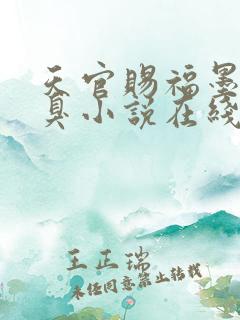 天官赐福墨
臭小说在线
王正瑞
未经同意禁止转载